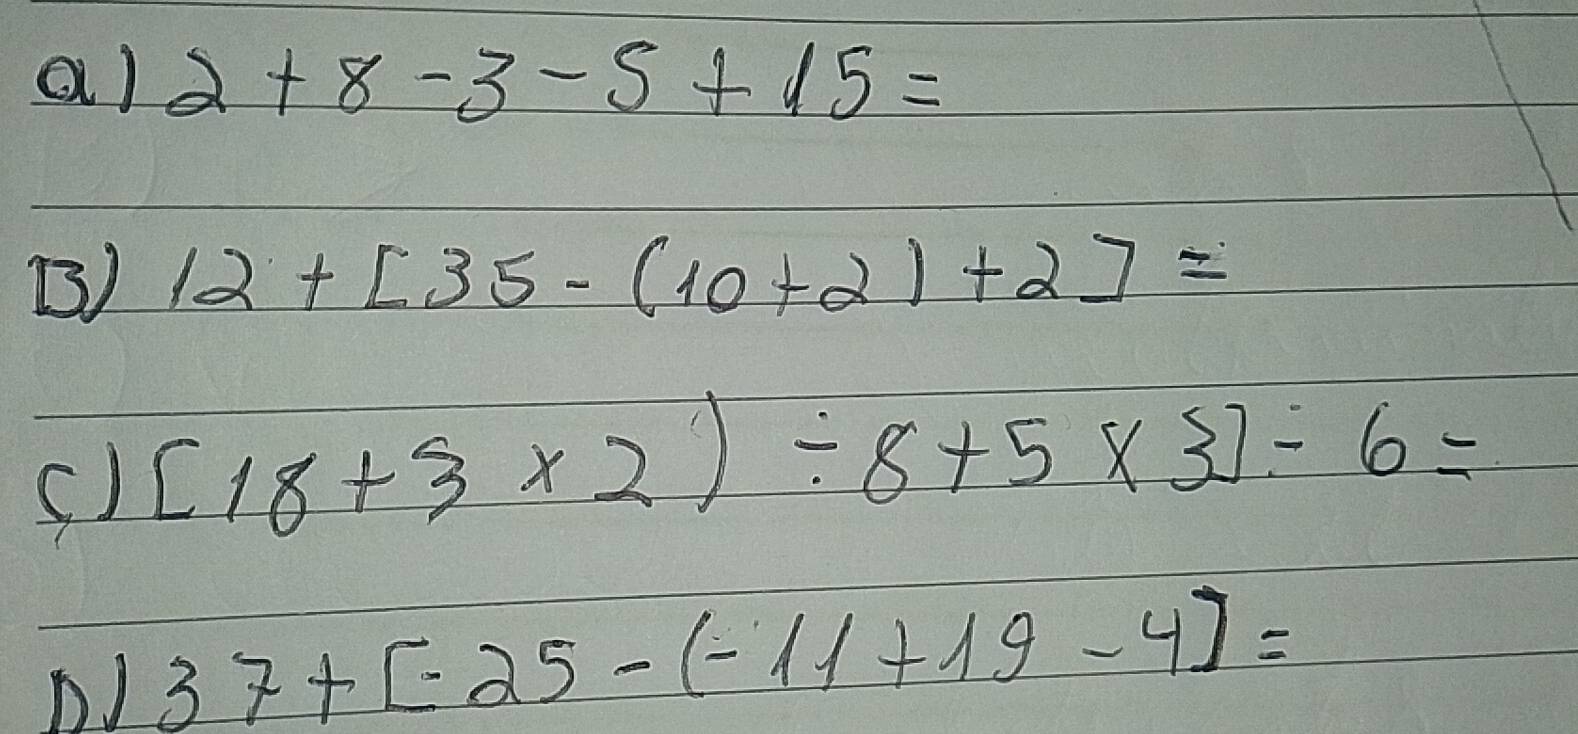 a) 2 + 8 - 3 - 5 + 15 =
B) 12 + [35 - (10 + 2) + 2] =
Ç) [18 + 3 x 2) ÷ 8 + 5 x 3] ÷ 6 =
D) 37 + [-25 - (-11 + 19 - 4] =